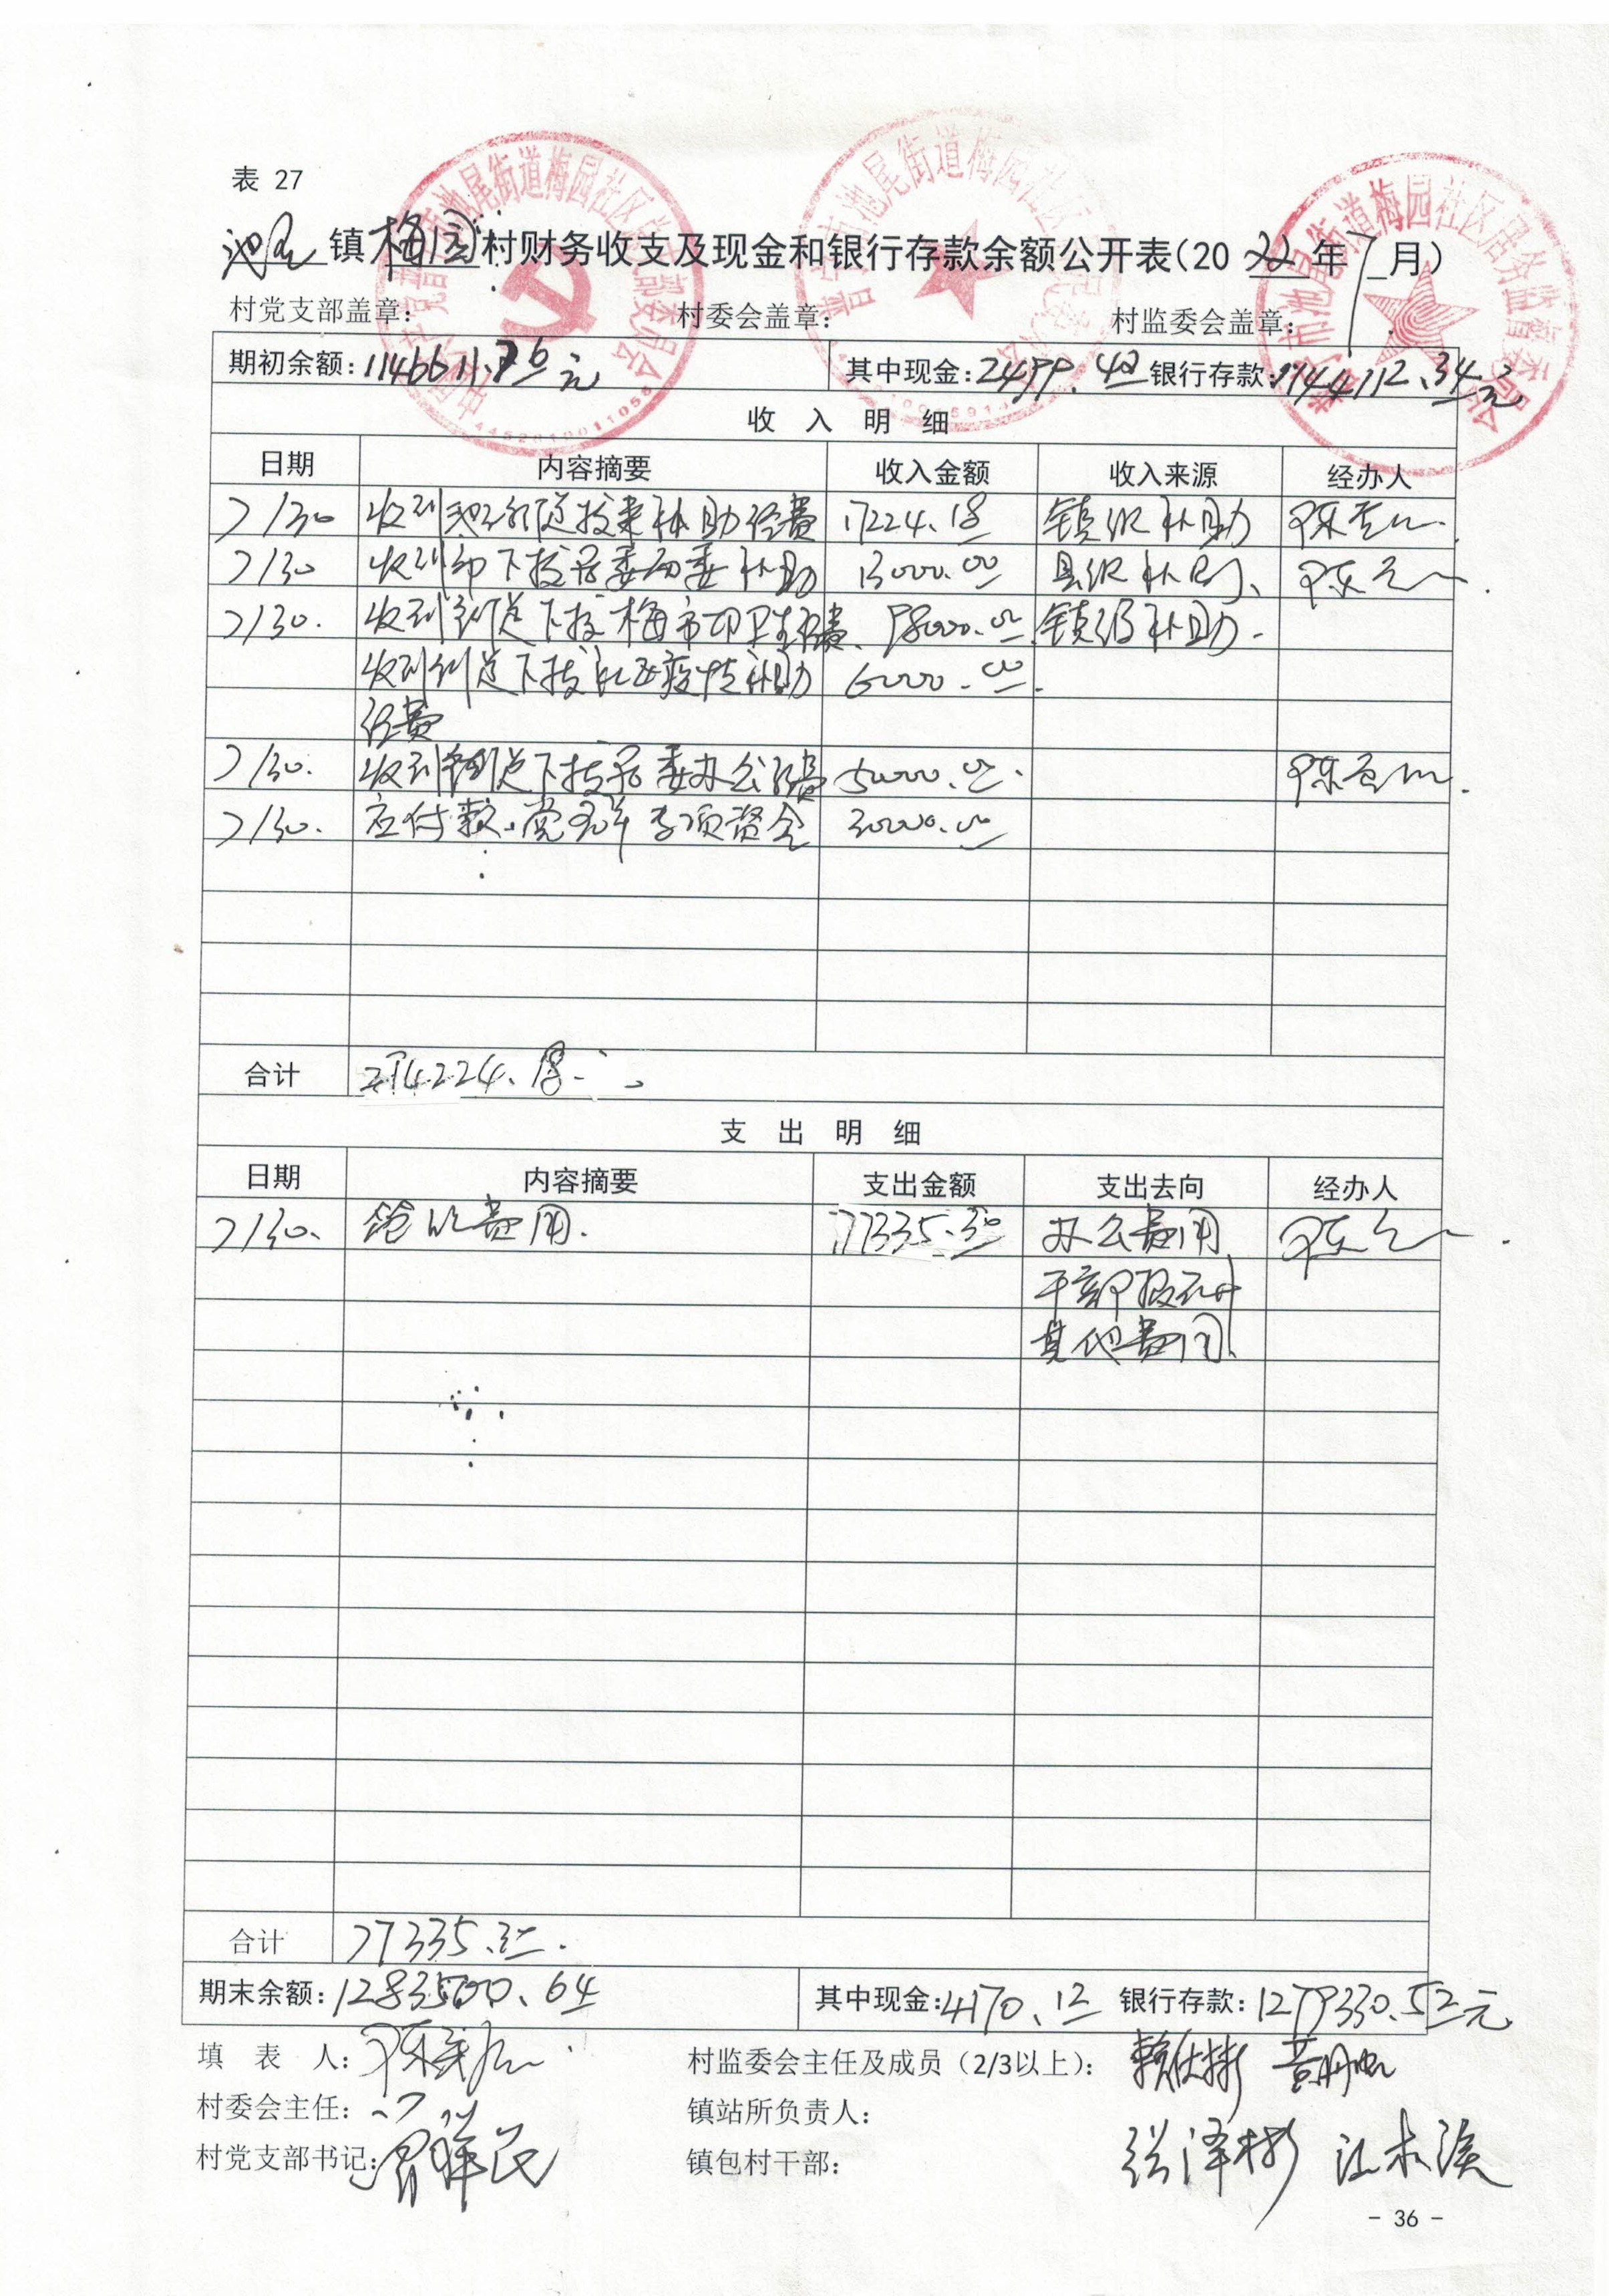 表 27
池尾镇梅园村财务收支及现金和银行存款余额公开表(2022年7月)
村党支部盖章: 村委会盖章: 村监委会盖章:
期初余额:1146611.76元 其中现金:2499.42 银行存款:1144112.34元
收 入 明 细
日期 内容摘要 收入金额 收入来源 经办人
7/30 收到池尾街道拨来补助经费 17224.18 镇级补助
7/30 收到市下拨居委两委补助 13000.00 县级补助
7/30. 收到街道下拨梅市切卫生经费 98000.00 镇级补助.
收到街道下拨社区疫情补助 6000.00.
经费
7/30. 收到街道下拨居委办公经费 50000.00.
7/30. 应付款.党群专项资金 30000.00
合计 214224.18
支 出 明 细
日期 内容摘要 支出金额 支出去向 经办人
7/30. 费用. 77335.30 办公费用
干部报酬
其他费用
合计 77335.30.
期末余额:1283500.64 其中现金:4170.12 银行存款:1279330.52元
填 表 人: 村监委会主任及成员(2/3以上):
村委会主任: 镇站所负责人:
村党支部书记: 镇包村干部: 张泽彬
- 36 -